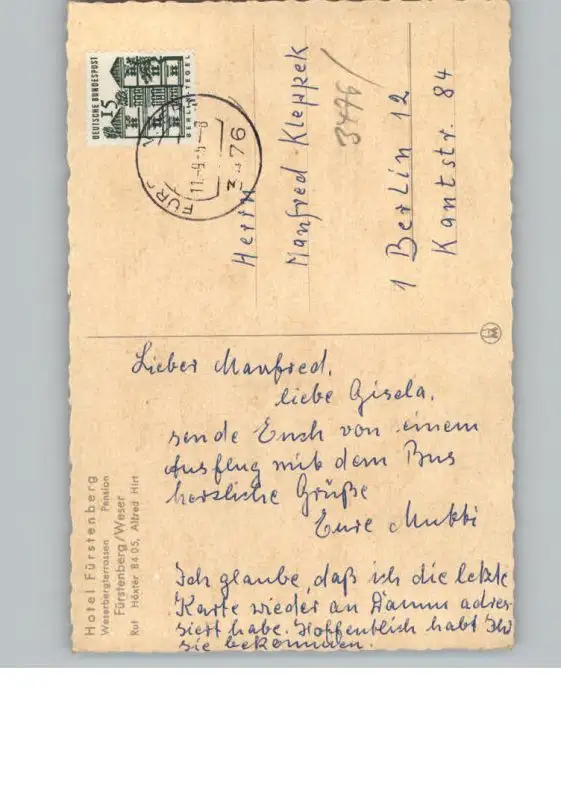 DEUTSCHE BUNDESPOST
15
BERLIN-TEGEL
3476
3476
Herrn
Manfred Kleppek
1 Berlin 12
Kantstr. 84
Lieber Manfred,
liebe Gisela,
sende Euch von einem
Ausflug mit dem Bus
herzliche Grüße
Eure Mukki
Ich glaube, daß ich die letzte
Karte wieder an Damm adres-
siert habe. Hoffentlich habt Ihr
sie bekommen.
Hotel Fürstenberg
Weserbergterrassen Pension
Fürstenberg/Weser
Ruf Höxter 84 05, Alfred Hirt